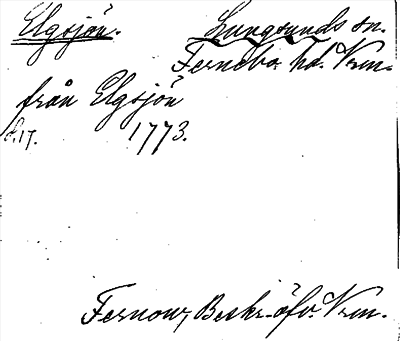 Elgsjön. Lungsunds sn.
Fernebo hd. Vrm.
från Elgsjön
s. 17. 1773.
Fernow, Beskr. öfv. Vrm.